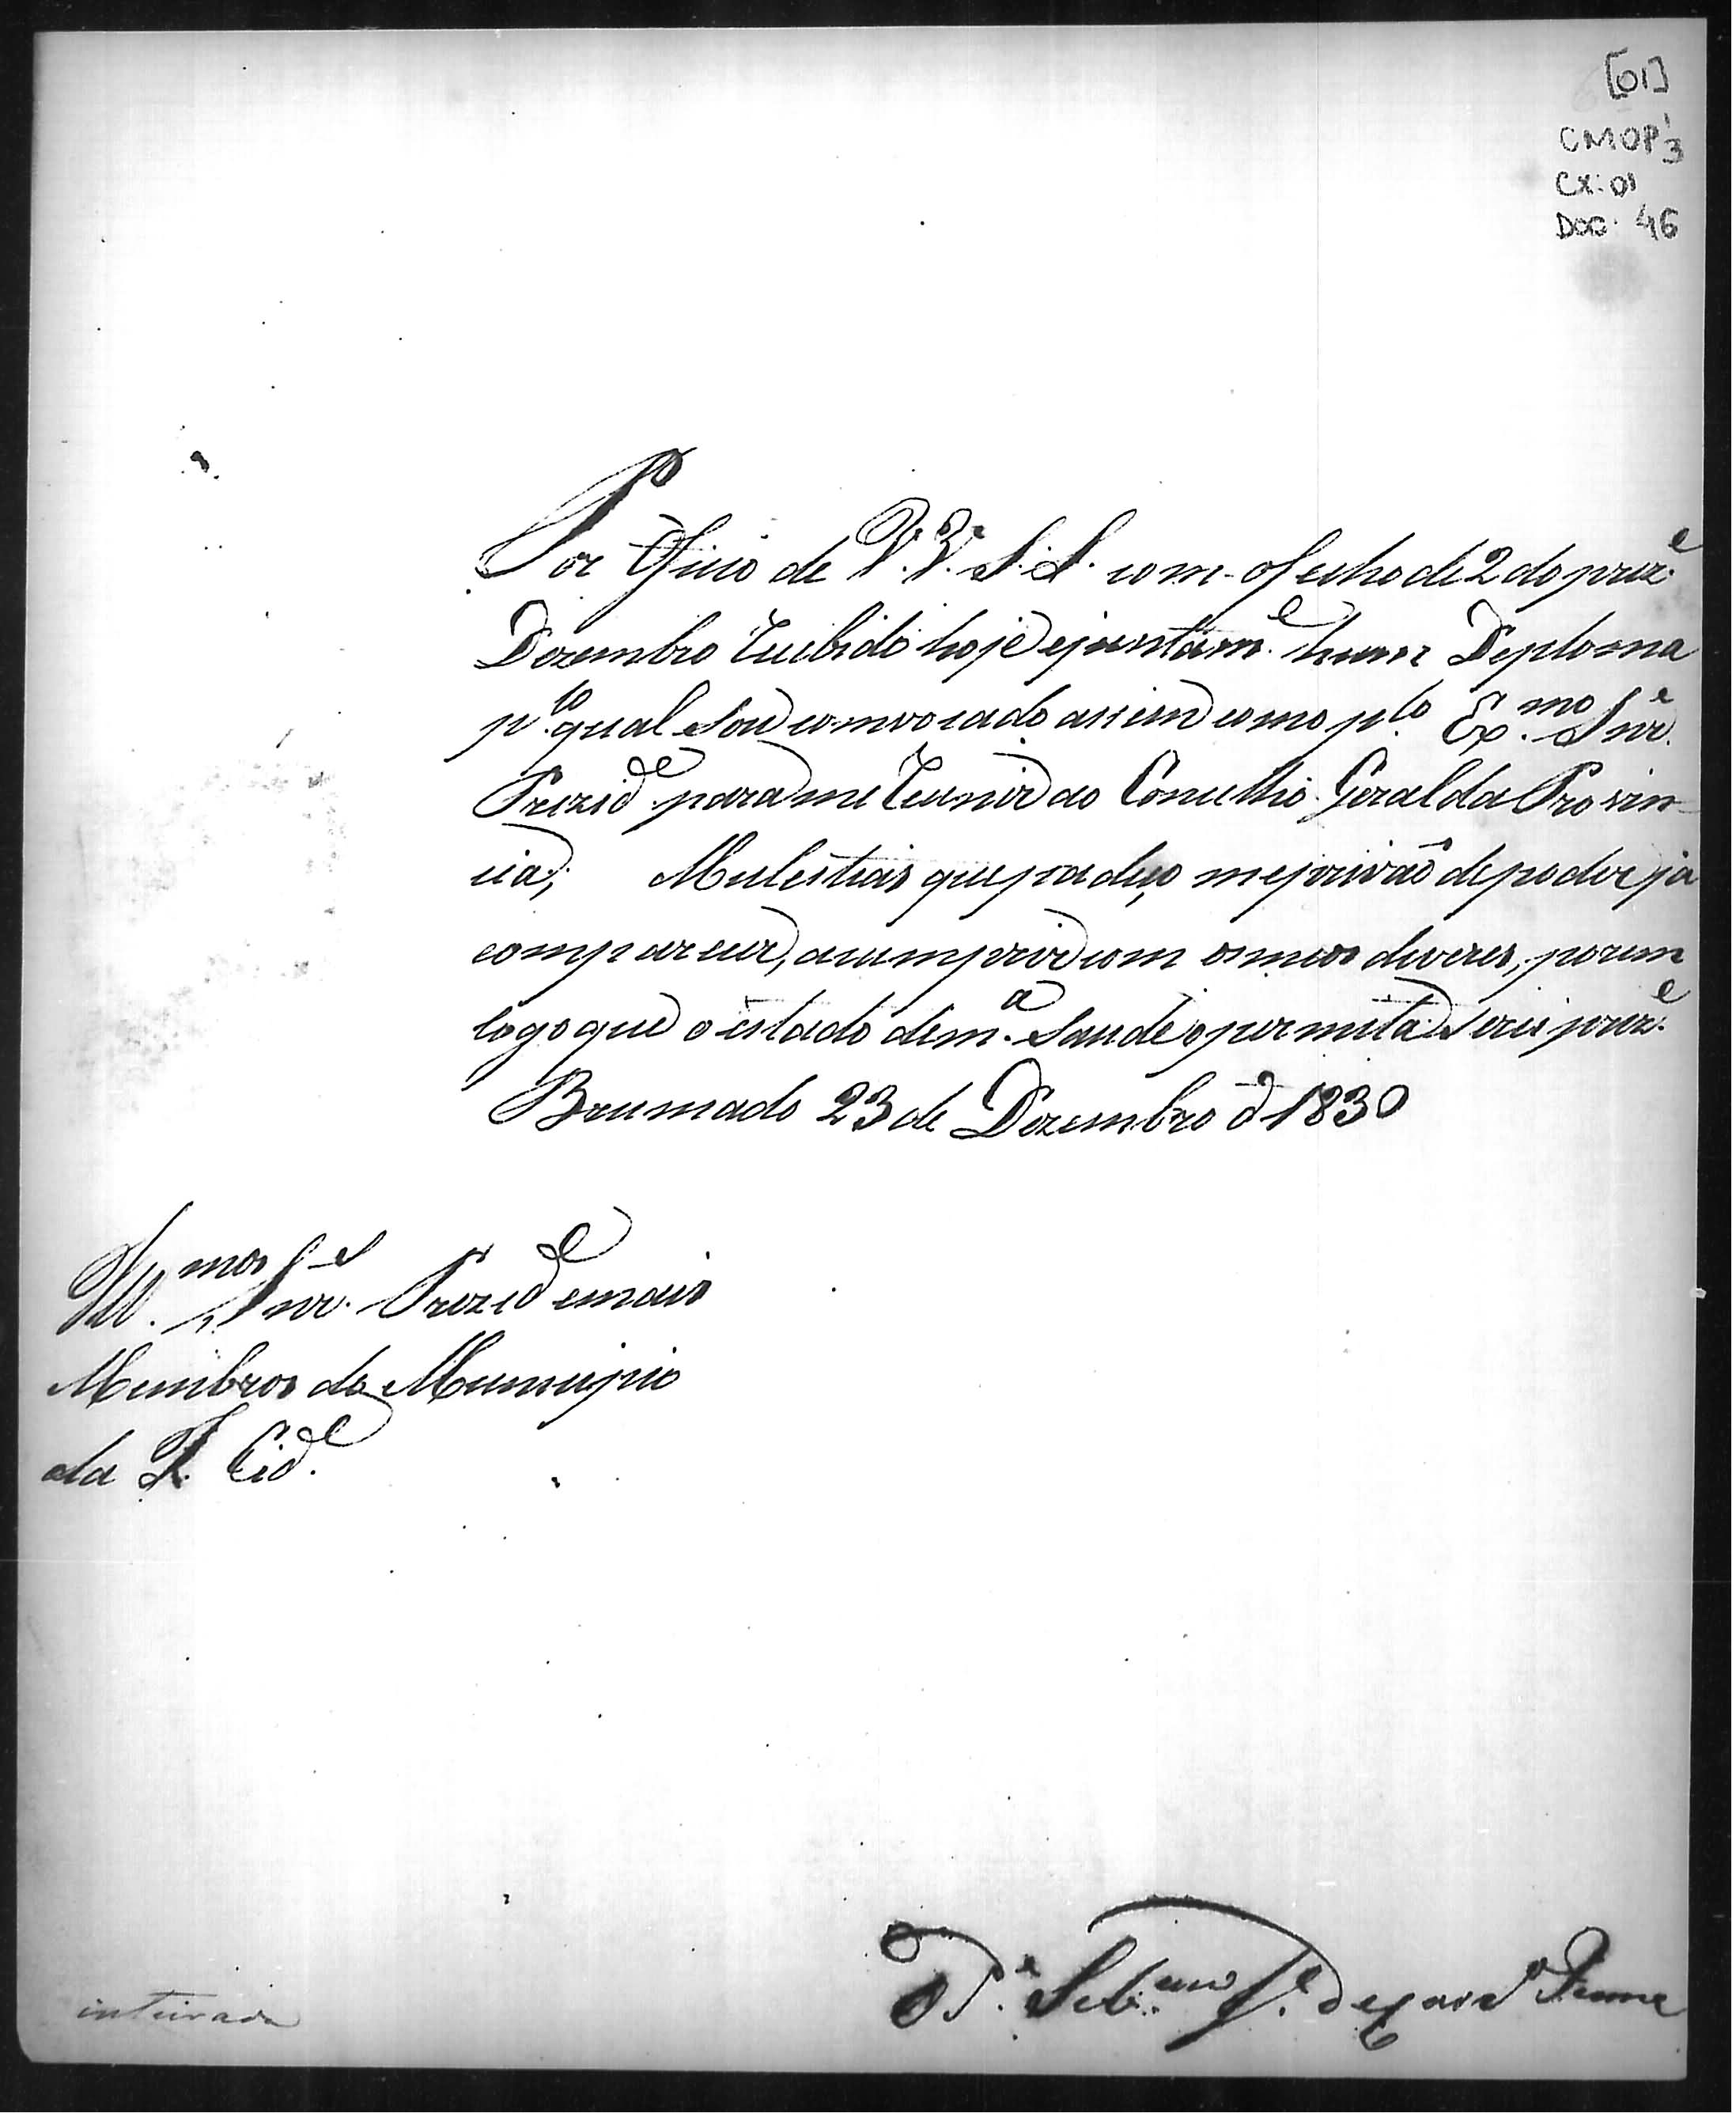 [01]
CMOP 1/3
CX: 01
DOC. 46
Por Oficio de V.V. S.S. com o fecho de 2 do preze.
Dezembro recibido hoje e juntame. hum Deploma
plo. qual sou convocado assim como plo. Exmo. Snr.
Prezide. para me reunir ao Concelho Geral da Provin-
cia; Mulestias que padeço me privaõ de poder ja
comparecer, a cumprir com os meos deveres, porem
logo que o estado de ma. Saude o permita serei preze.
Brumado 23 de Dezembro d 1830
Illmos. Snres. Prezide e mais
Membros do Municipio
da I. Cide.
inteirada
O Pe. Seb.am Je. de Penna